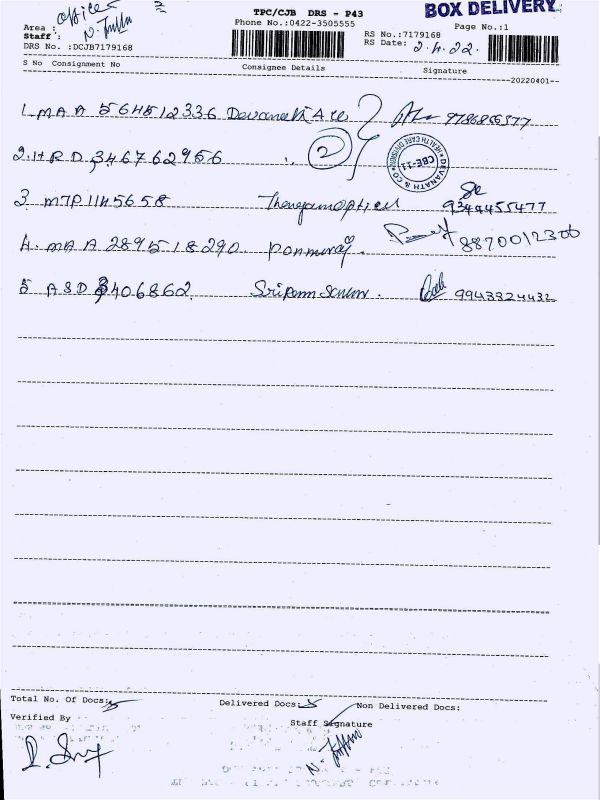 BOX DELIVERY
TPC/CJB DRS - P43
Area : Office
Phone No.:0422-3505555
Page No.:1
Staff :
RS No.:7179168
DRS No. :DCJB7179168
RS Date: 2.4.22.
S No Consignment No Consignee Details Signature
--20220401--
1. MAA 564512336 Devanath & Co 9786856577
2. HRD 346762956 2
DEVANATH & CO
HEALTH CARE DIVISION
CBE-11
3 MTP 1145658 9344455477
4. MAA 289518290. 8870012300
5 ASD 3406862 9943324432
Total No. Of Docs: 5 Delivered Docs: 5 Non Delivered Docs:
Verified By Staff Signature